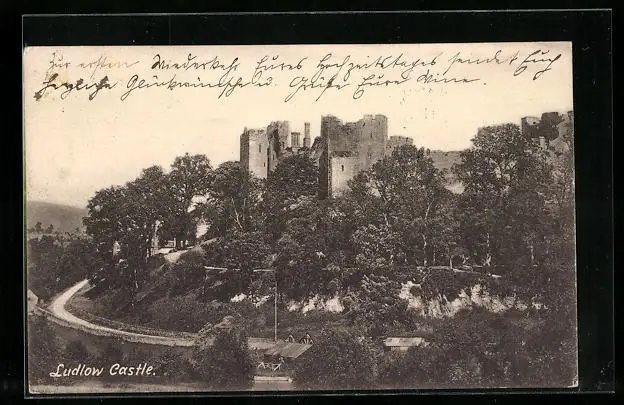 Zur ersten Wiederkehr Eures Hochzeitstages sendet Euch
herzliche Glückwünsche u. Grüße Eure Wine.
Ludlow Castle.